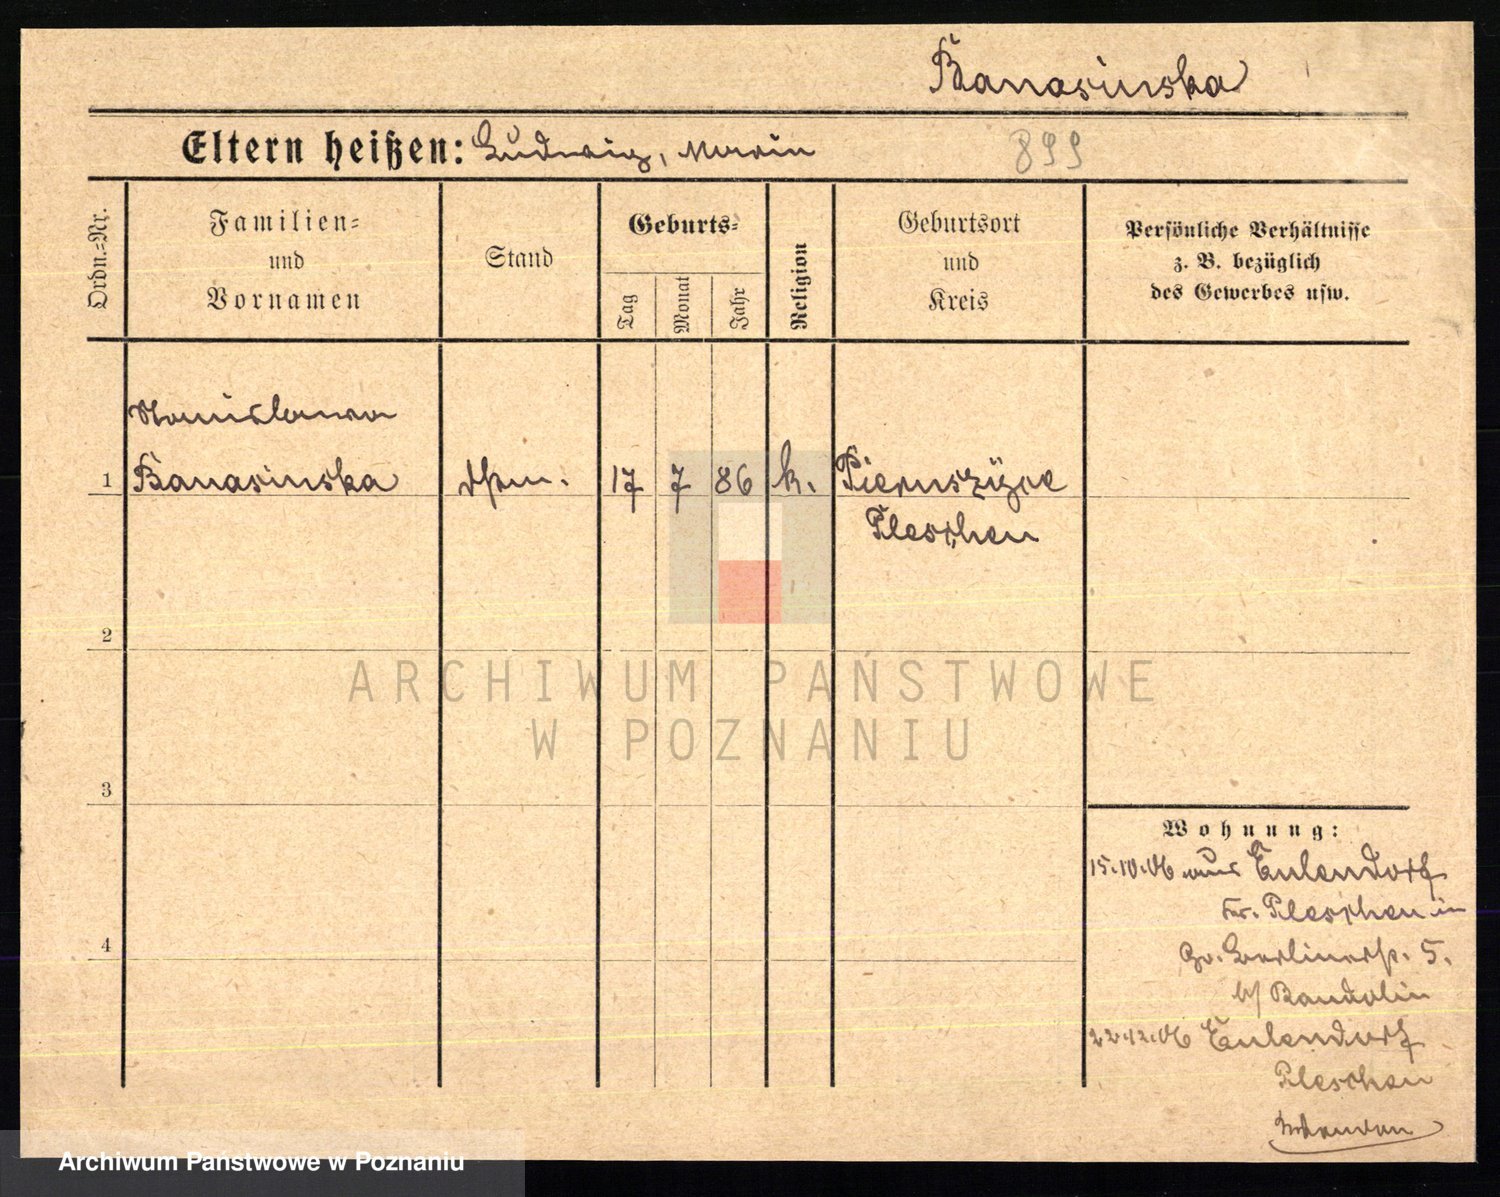 Banasinska
Eltern heißen: Ludwig, Marie
899
Ordn.=Nr.
Familien=
und
Vornamen
Stand
Geburts=
Tag
Monat
Jahr
Religion
Geburtsort
und
Kreis
Persönliche Verhältnisse
z. B. bezüglich
des Gewerbes usw.
Stanislawa
1 Banasinska 17 7 86 k.
Pleschen
2
3
4
Wohnung:
15.10.06 aus Eulendorf
Kr. Pleschen in
Berlinerstr. 5.
b/ Bandolin
22.12.06 Eulendorf
Pleschen
ARCHIWUM PAŃSTWOWE
W POZNANIU
Archiwum Państwowe w Poznaniu